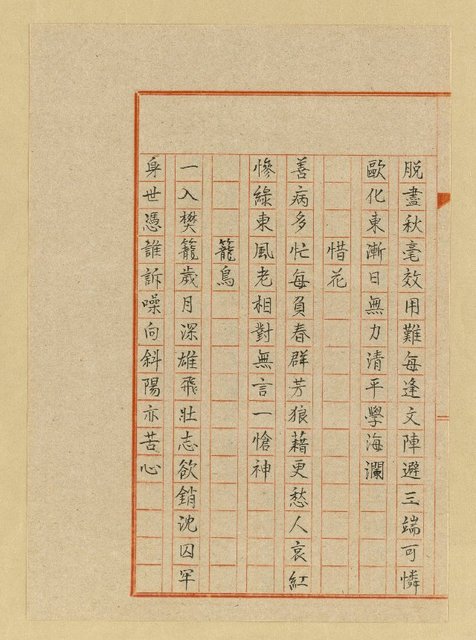 脫盡秋毫效用難每逢文陣避三端可憐
歐化東漸日無力清平學海瀾
惜花
善病多忙每負春群芳狼藉更愁人哀紅
慘綠東風老相對無言一愴神
籠鳥
一入樊籠歲月深雄飛壯志欲銷沈囚牢
身世憑誰訴噪向斜陽亦苦心